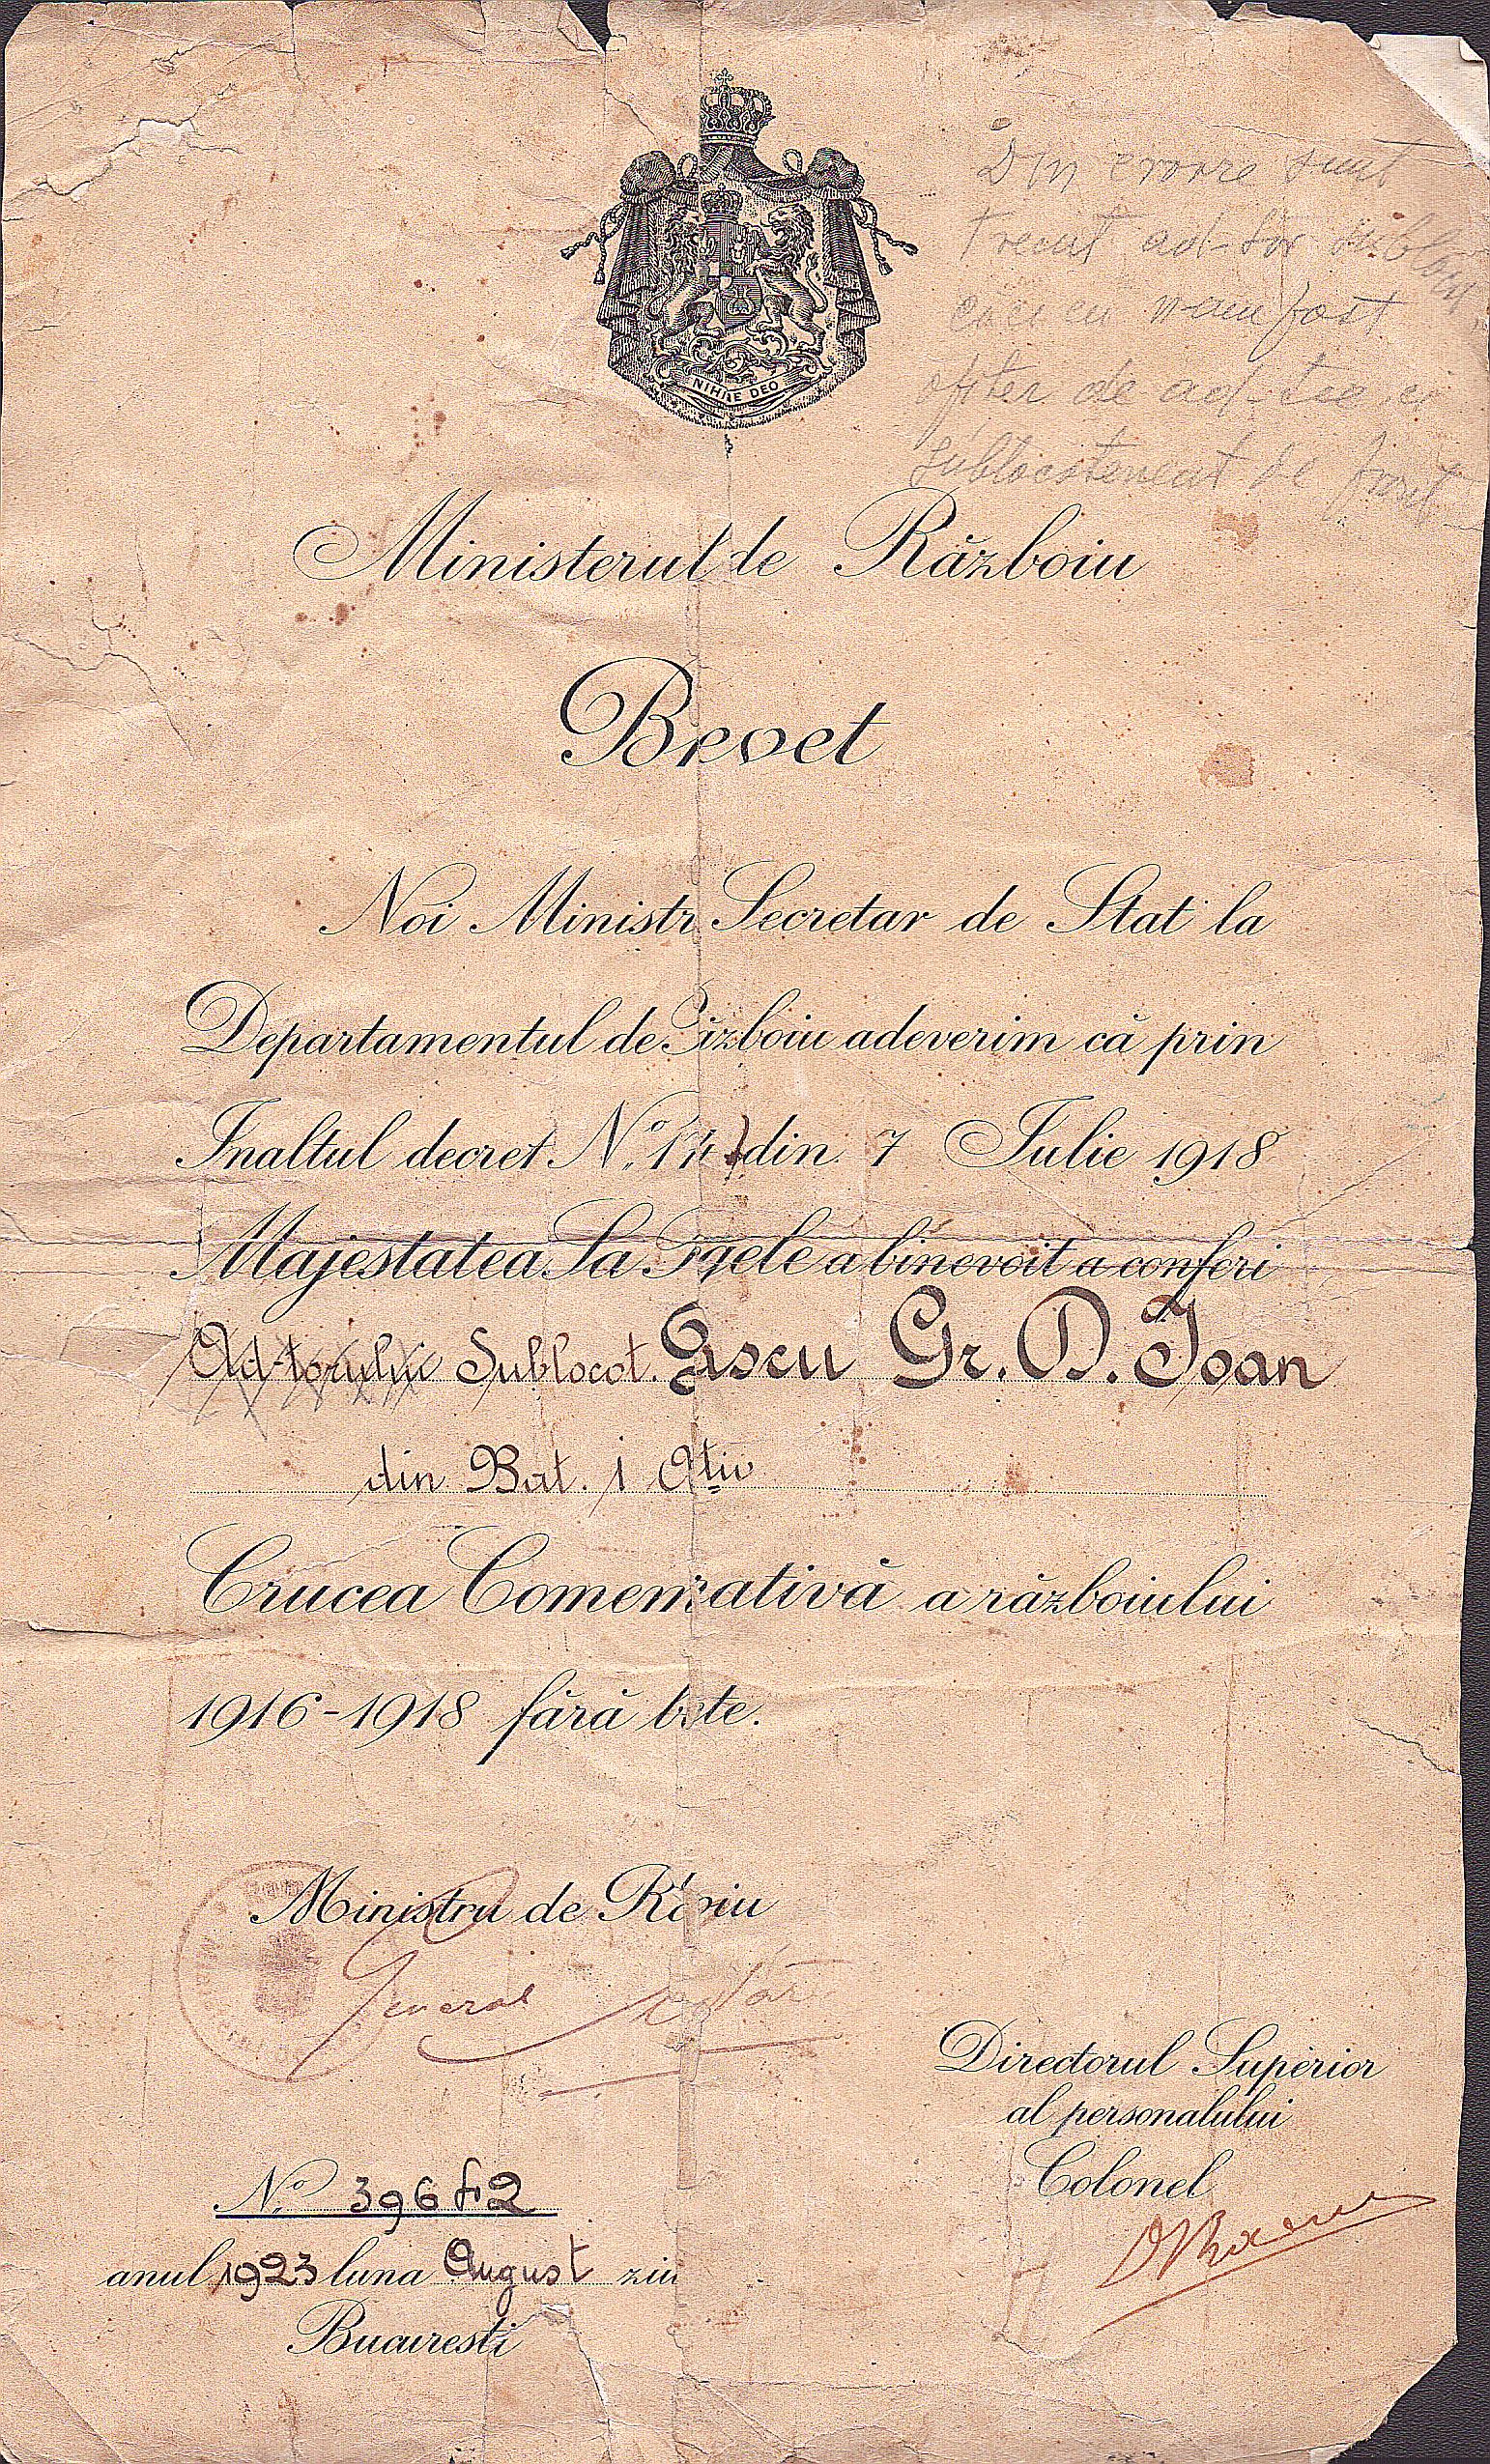 Din eroare sunt
trecut ad-tor
căci eu n-am fost
ofiter de ad-tie ci
sublocotenent de front
NIHIL SINE DEO
Ministerul de Războiu
Brevet
Noi Ministru Secretar de Stat la
Departamentul de Războiu adeverim că prin
Inaltul decret No. din 7 Iulie 1918
Majestatea Sa Regele a binevoit a conferi
Ad-torului Sublocot. Gr. D. Ioan
din Bat. 1
Crucea Comemorativă a războiului
1916-1918 fără barete.
Ministru de Războiu
General
Directorul Superior
al personalului
Colonel
No 396
anul 1923 luna August ziua
Bucuresti